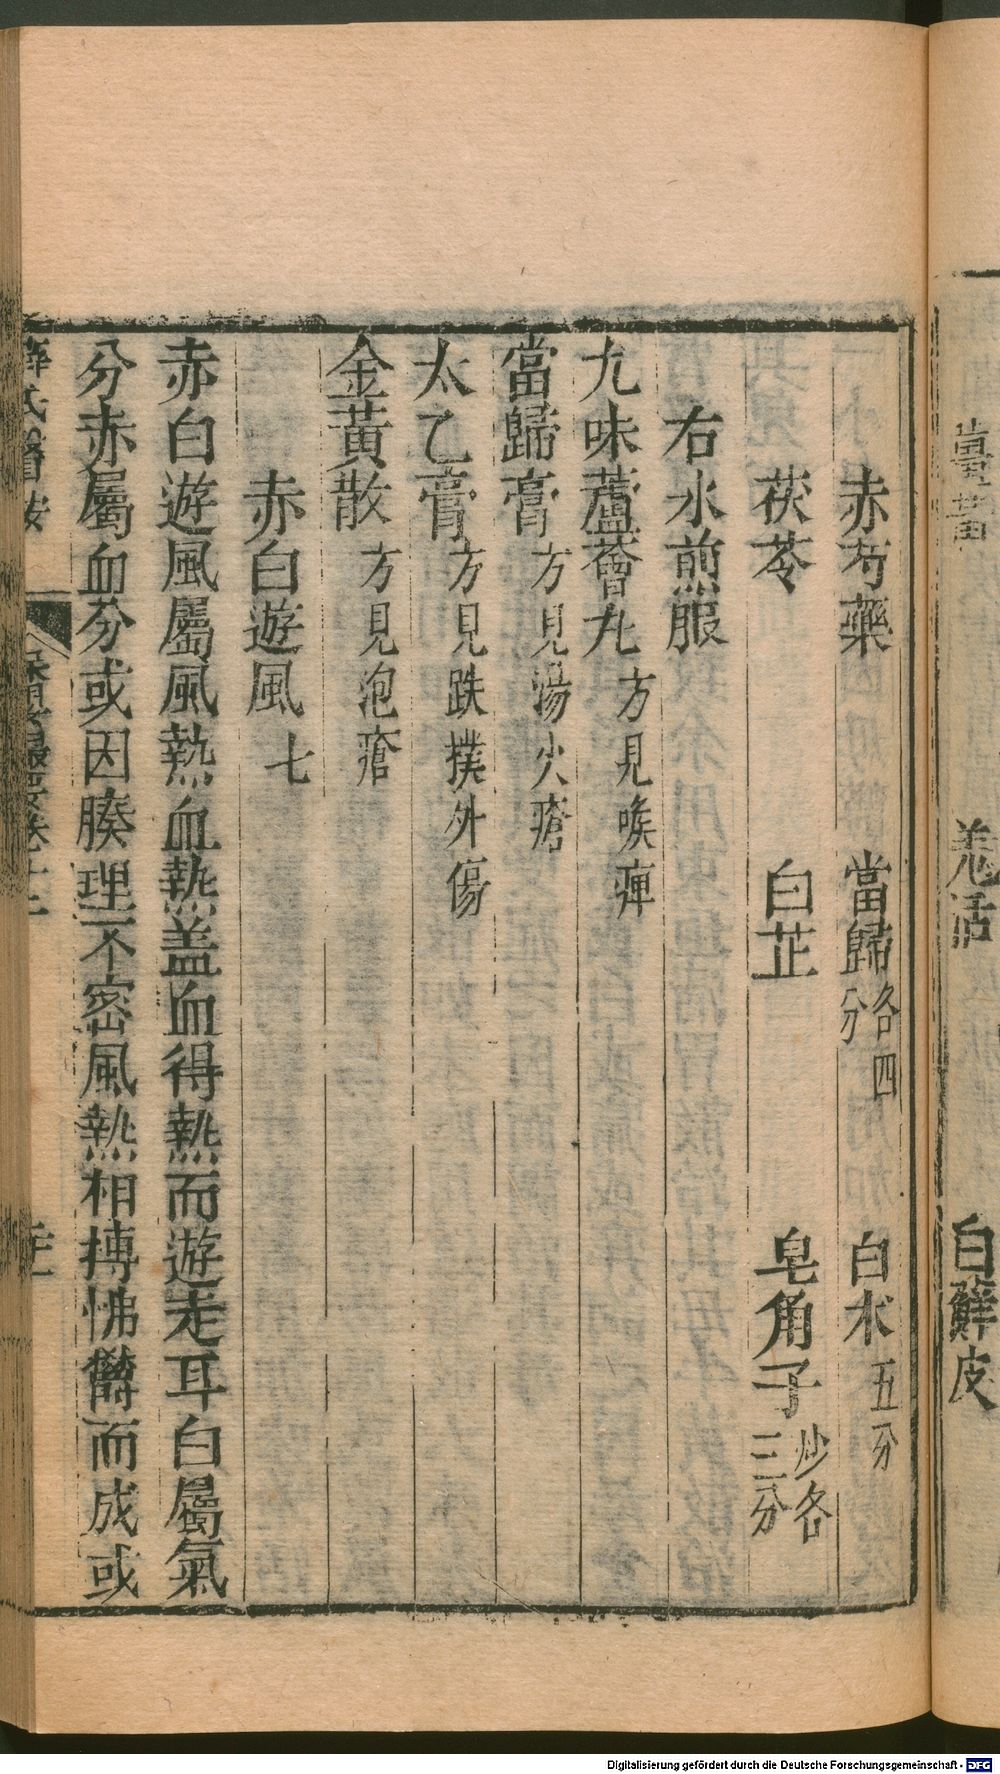 白蘚皮
赤芍藥 當歸各四分 白朮五分
茯苓 白芷 皂角子炒各三分
右水煎服
九味蘆薈丸方見喉痺
當歸膏方見湯火瘡
太乙膏方見跌撲外傷
金黃散方見泡瘡
赤白遊風七
赤白遊風屬風熱血熱蓋血得熱而遊走耳白屬氣
分赤屬血分或因腠理不密風熱相搏怫鬱而成或
薛氏醫按
保嬰撮要卷十二
Digitalisierung gefördert durch die Deutsche Forschungsgemeinschaft - DFG